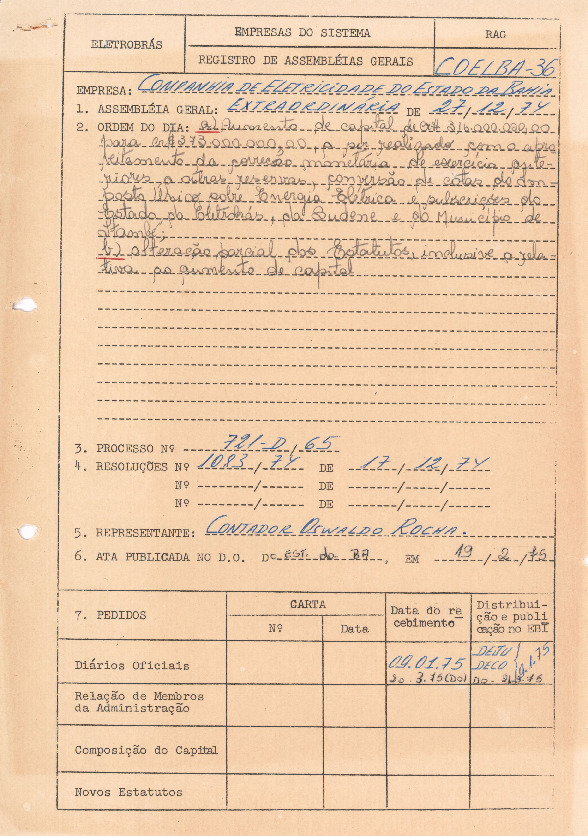 ELETROBRÁS
EMPRESAS DO SISTEMA
RAG
REGISTRO DE ASSEMBLÉIAS GERAIS
COELBA-36
EMPRESA: COMPANHIA DE ELETRICIDADE DO ESTADO DA BAHIA
1. ASSEMBLÉIA GERAL: EXTRAORDINÁRIA DE 27/12/74
2. ORDEM DO DIA: a) Aumento de capital de Cr$ 316.000.000,00
para Cr$ 373.000.000,00, a ser realizado com a apro
veitamento da correção monetária de exercício ante-
riores a outras reservas, conversão de cotas do Im-
posto Único sobre Energia Elétrica e subscrições do
Estado, da Eletrobrás, da Sudene e do Município de
b) alteração parcial dos Estatutos, inclusive a rela-
tiva ao aumento de capital
3. PROCESSO Nº 721-D/65
4. RESOLUÇÕES Nº 1083/74 DE 17/12/74
Nº ------/------ DE -----/----/----
Nº ------/------ DE -----/----/----
5. REPRESENTANTE: CONTADOR OSWALDO ROCHA.
6. ATA PUBLICADA NO D.O. Do EST. do BA, EM 19/2/75
7. PEDIDOS
CARTA
Nº
Data
Data do re
cebimento
Distribui-
ção e publi
cação no EBI
Diários Oficiais
09.01.75
20.3.75 (DO)
DEJU
DECO
9.1.75
DO-
Relação de Membros
da Administração
Composição do Capital
Novos Estatutos